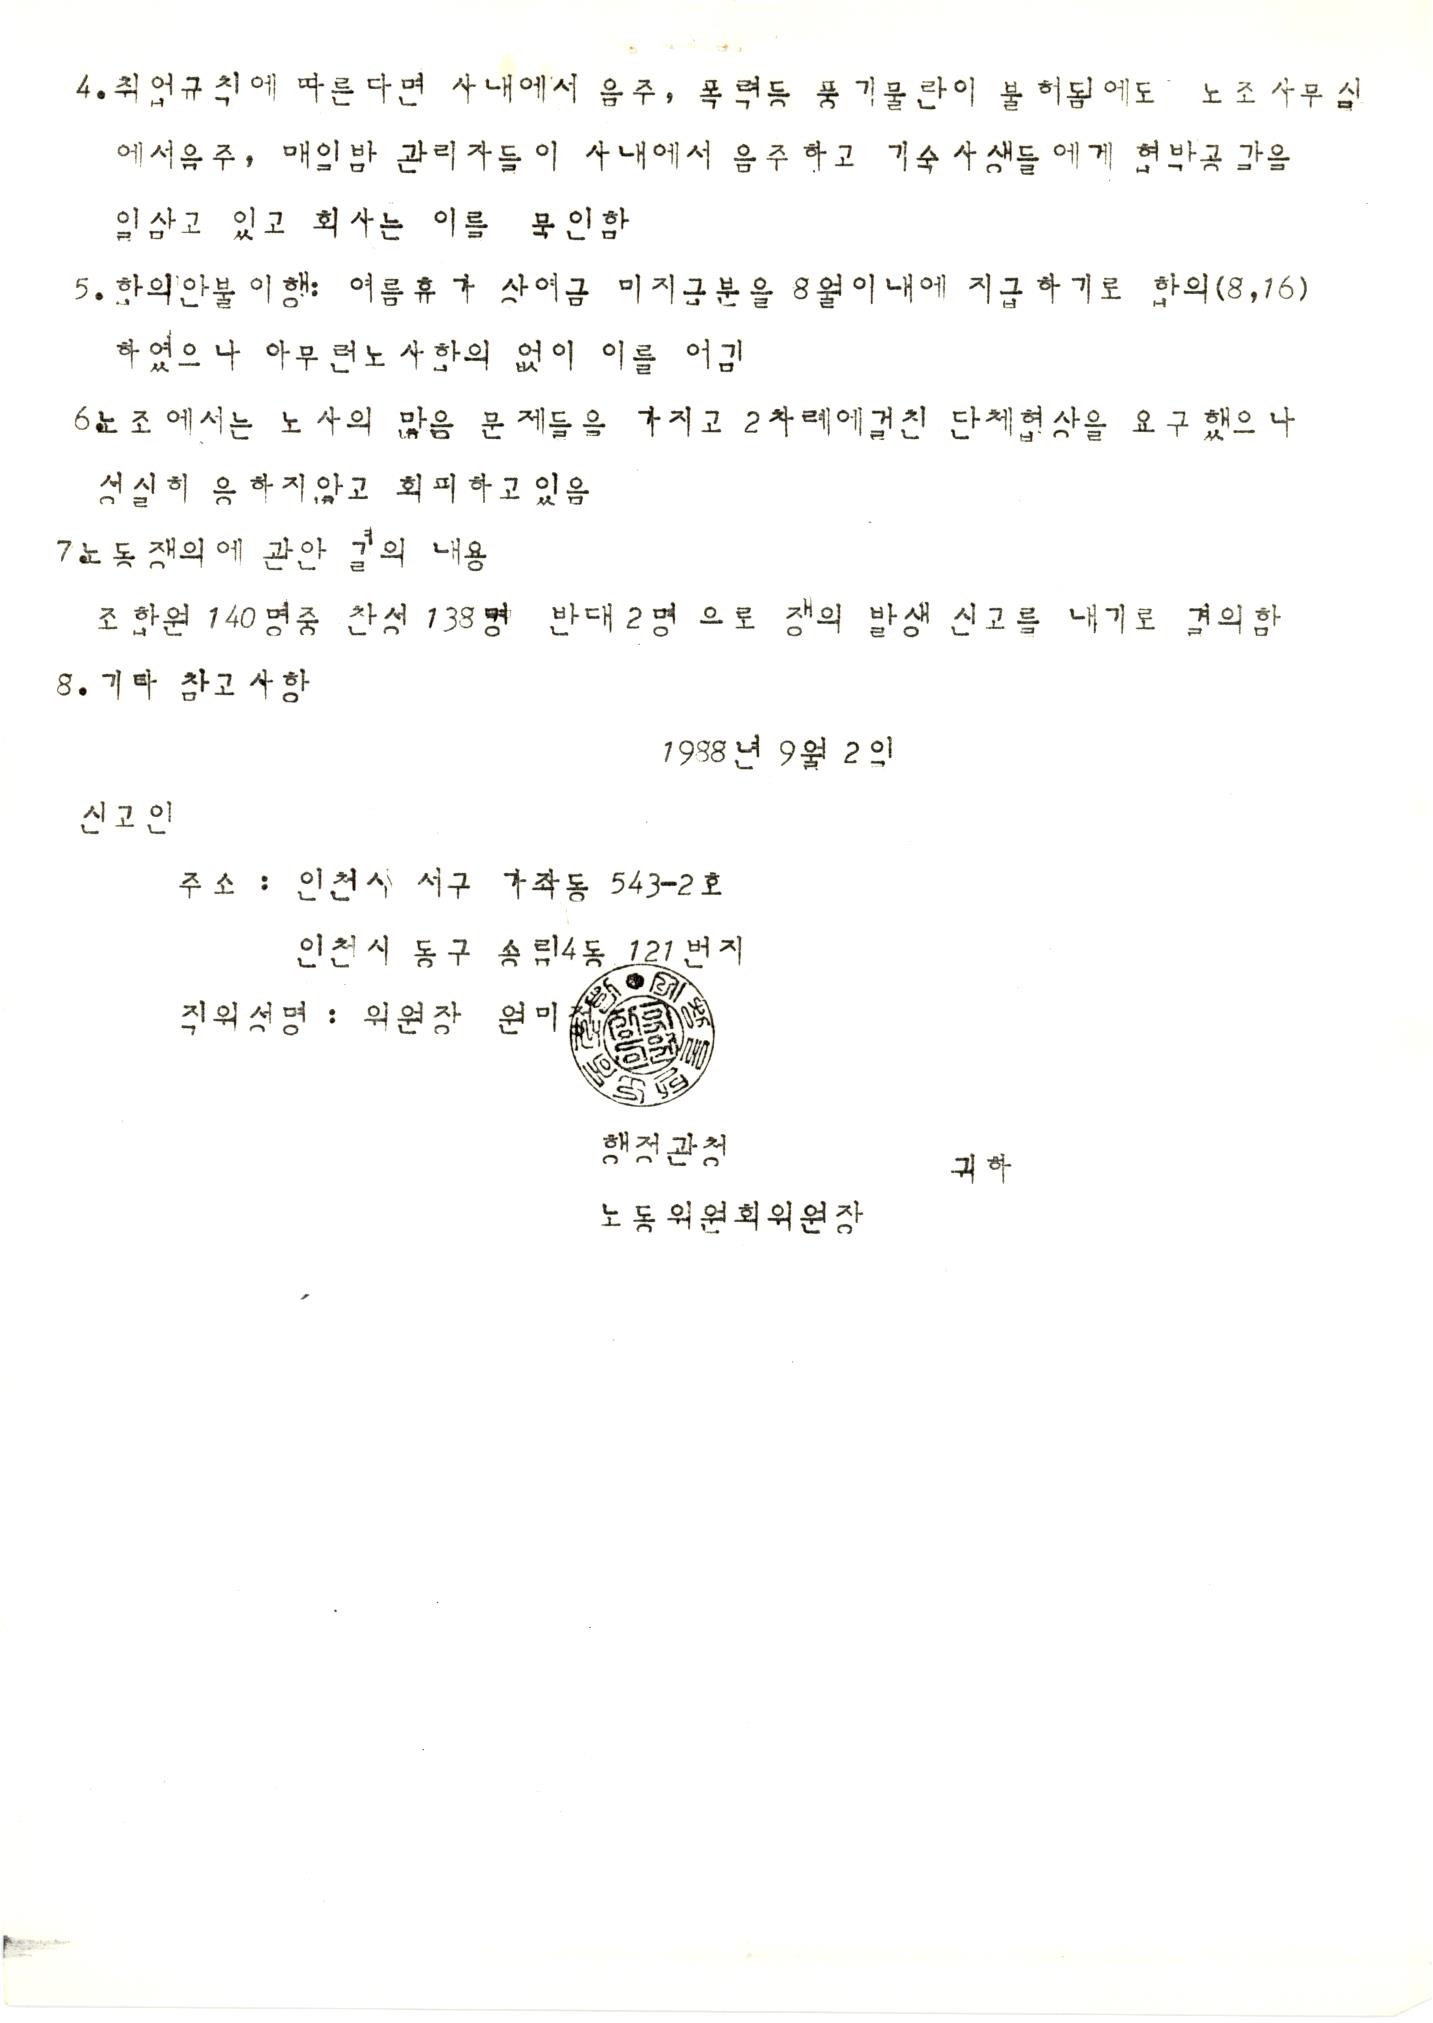 4.취업규칙에 따른다면 사내에서 음주, 폭력등 풍기물란이 불허됨에도 노조사무실
에서음주, 매일밤 관리자들이 사내에서 음주하고 기숙사생들에게 협박공갈을
일삼고 있고 회사는 이를 묵인함
5.합의안불이행: 여름휴가 상여금 미지급분을 8월이내에 지급하기로 합의(8,16)
하였으나 아무런노사합의 없이 이를 어김
6.노조에서는 노사의 많음 문제들을 가지고 2차례에걸친 단체협상을 요구했으나
성실히 응하지않고 회피하고있음
7.노동쟁의에 관안 결의 내용
조합원 140명중 찬성 138명 반대2명으로 쟁의 발생 신고를 내기로 결의함
8.기타 참고사항
1988년 9월 2일
신고인
주소 : 인천시 서구 가좌동 543-2호
인천시 동구 송림4동 121번지
직위성명 : 위원장 원미
행정관청
귀하
노동위원회위원장